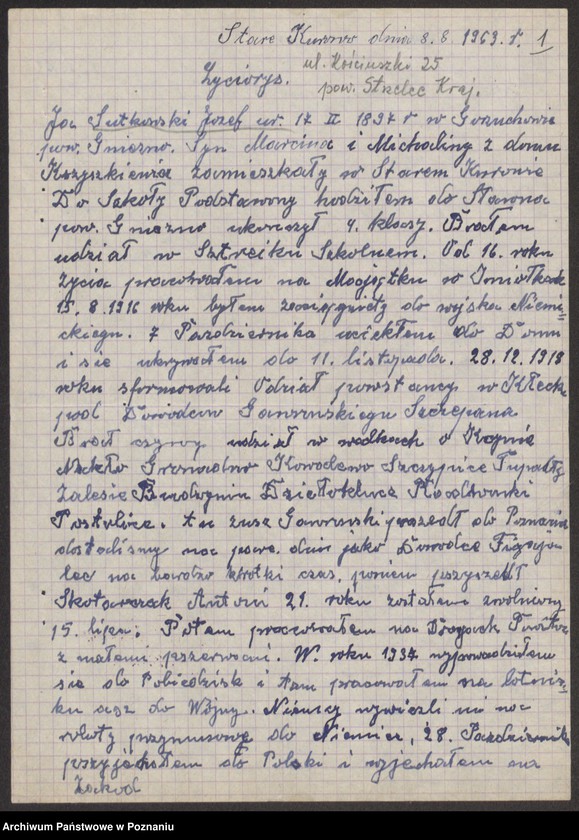 Stare Kurowo dnia 8.8.1969.r. 1
ul. Kościuszki 25
Życiorys. pow. Strzelec Kraj.
Ja Sutkowski Józef ur. 17 II 1897 r w Gorzuchowie
pow. Gniezno. Syn Marcina i Michaliny z domu
zamieszkały w Starem Kurowie
Do Szkoły Podstawowy hodziłem do Sławna
pow. Gniezno ukonczył 4. klasy. Brałem
udział w Sztreiku Szkolnem. Od 16. roku
życia pracowałem na Majątku w Imiołkach
15.8.1916 roku byłem zaciągnięty do wojska Niemi-
ckiego. 7 Pazdziernika uciekłem do Domu
i sie ukrywałem do 11. listopada. 28.12.1918
roku sformowali Odział powstancy w Kłecku
pod Dowodcą Gawrunskiego Szczepana
Brał czynny udział w walkach o Kcynie
Nakło Gromadno Kowalewo Szczypice Tupadły
Zalesie Studzienki
. tu zusz Gawrunski przeszedł do Poznania
dostaliśmy na parę dnie jako Dowodce
na bardzo krótki czas, poniem przyszedł
Skotarczak Antoni 21. roku zostałem zwolniony
15. lipca. Potem pracowałem na Drogach
z małemi przerwami. W. roku 1937 wyprowadziłem
sie do Pobiedzisk i tam pracowałem na lotnis-
ku asz do Wojny. Niemcy wywiezli mi na
roboty przymusowe do Niemiec, 28. Pazdziernika
przyjechałem do Polski i wyjechałem na
Zachod
Archiwum Państwowe w Poznaniu